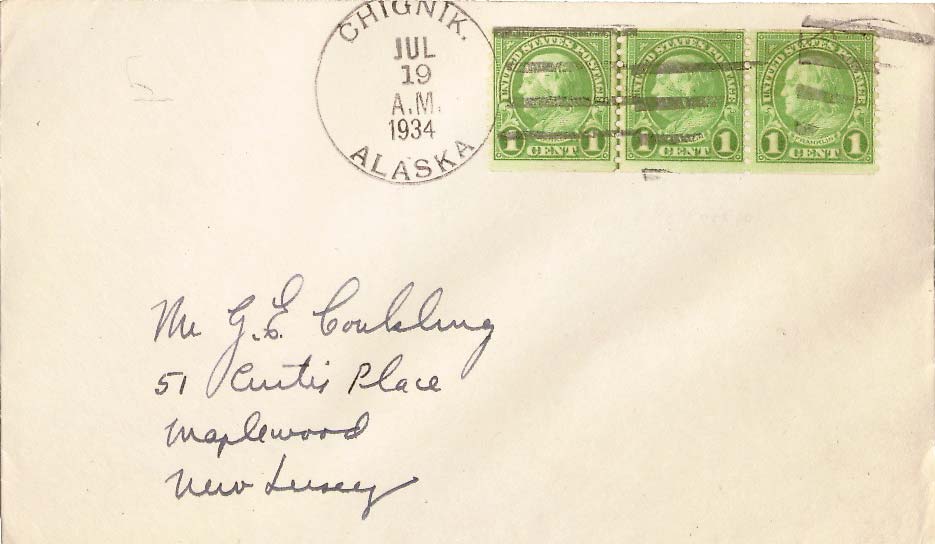 CHIGNIK.
JUL
19
A.M.
1934
ALASKA
UNITED STATES POSTAGE
1 CENT 1
UNITED STATES POSTAGE
1 CENT 1
UNITED STATES POSTAGE
FRANKLIN
1 CENT 1
Mr G.E. Conkling
51 Curtis Place
Maplewood
New Jersey